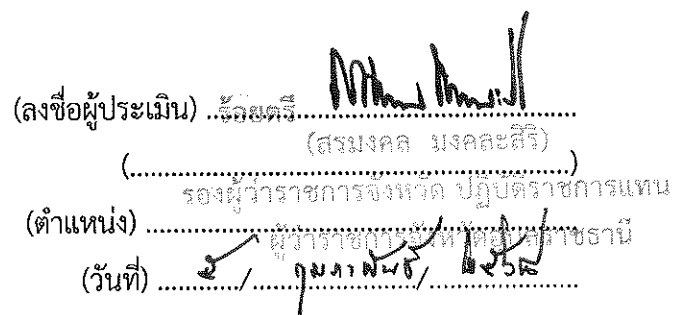 (ลงชื่อผู้ประเมิน) ร้อยตรี
(สรมงคล มงคละสิริ)
(....................................................................)
รองผู้ว่าราชการจังหวัด ปฏิบัติราชการแทน
(ตำแหน่ง)
ผู้ว่าราชการจังหวัดอุบลราชธานี
(วันที่) ........./ กุมภาพันธ์ /.........